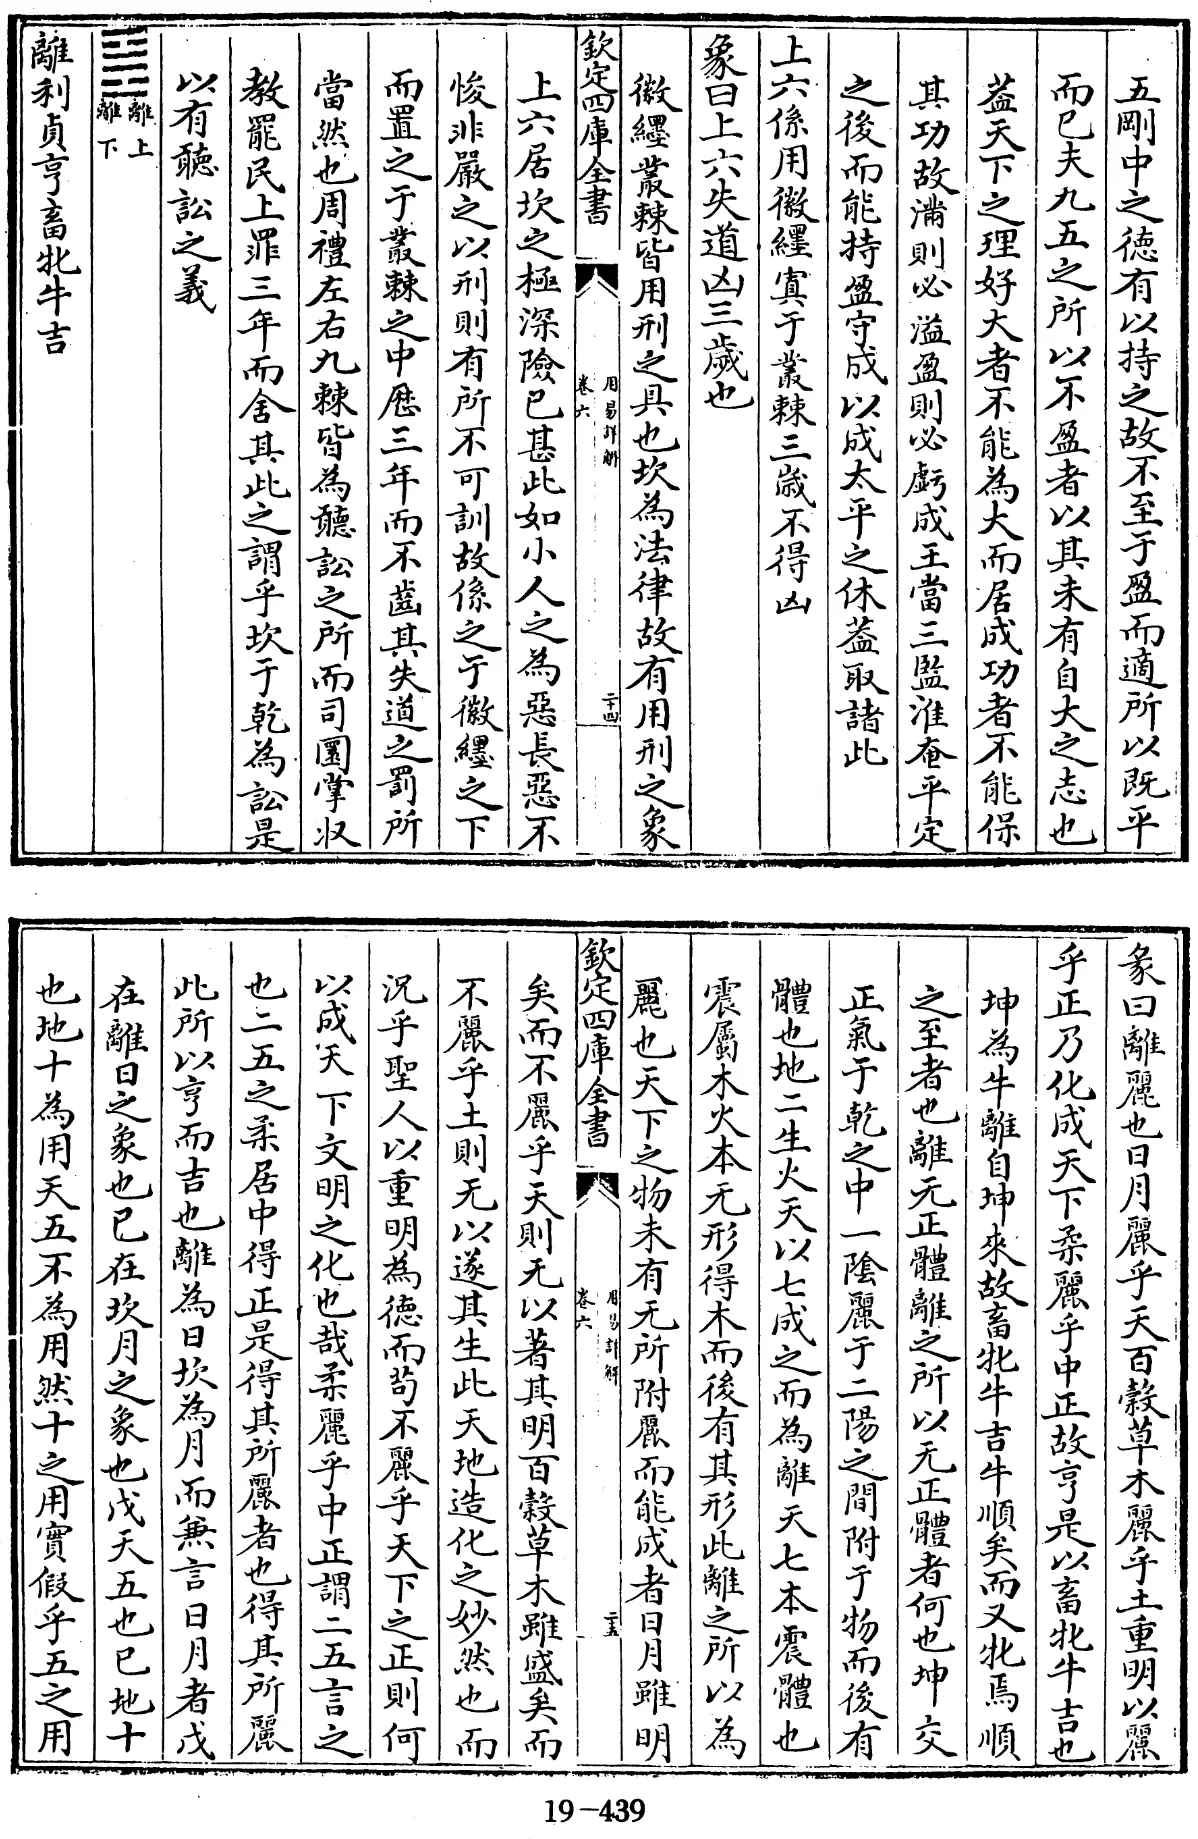 五剛中之徳有以持之故不至于盈而適所以既平
而已夫九五之所以不盈者以其未有自大之志也
葢天下之理好大者不能為大而居成功者不能保
其功故滿則必溢盈則必虧成王當三監淮奄平定
之後而能持盈守成以成太平之休葢取諸此
上六係用徽纆寘于叢棘三歳不得凶
象曰上六失道凶三歳也
徽纆叢棘皆用刑之具也坎為法律故有用刑之象
欽定四庫全書
周易詳解
卷六
二十四
上六居坎之極深險已甚此如小人之為惡長惡不
悛非嚴之以刑則有所不可訓故係之于徽纆之下
而置之于叢棘之中歴三年而不齒其失道之罰所
當然也周禮左右九棘皆為聽訟之所而司圜掌收
教罷民上罪三年而舍其此之謂乎坎于乾為訟是
以有聽訟之義
離上
離下
離利貞亨畜牝牛吉
彖曰離麗也日月麗乎天百穀草木麗乎土重明以麗
乎正乃化成天下柔麗乎中正故亨是以畜牝牛吉也
坤為牛離自坤來故畜牝牛吉牛順矣而又牝焉順
之至者也離无正體離之所以无正體者何也坤交
正氣于乾之中一陰麗于二陽之間附于物而後有
體也地二生火天以七成之而為離天七本震體也
震屬木火本无形得木而後有其形此離之所以為
麗也天下之物未有无所附麗而能成者日月雖明
欽定四庫全書
周易詳解
卷六
二十五
矣而不麗乎天則无以著其明百穀草木雖盛矣而
不麗乎土則无以遂其生此天地造化之妙然也而
况乎聖人以重明為徳而茍不麗乎天下之正則何
以成天下文明之化也哉柔麗乎中正謂二五言之
也二五之柔居中得正是得其所麗者也得其所麗
此所以亨而吉也離為日坎為月而兼言日月者戊
在離日之象也已在坎月之象也戊天五也已地十
也地十為用天五不為用然十之用實假乎五之用
19-439